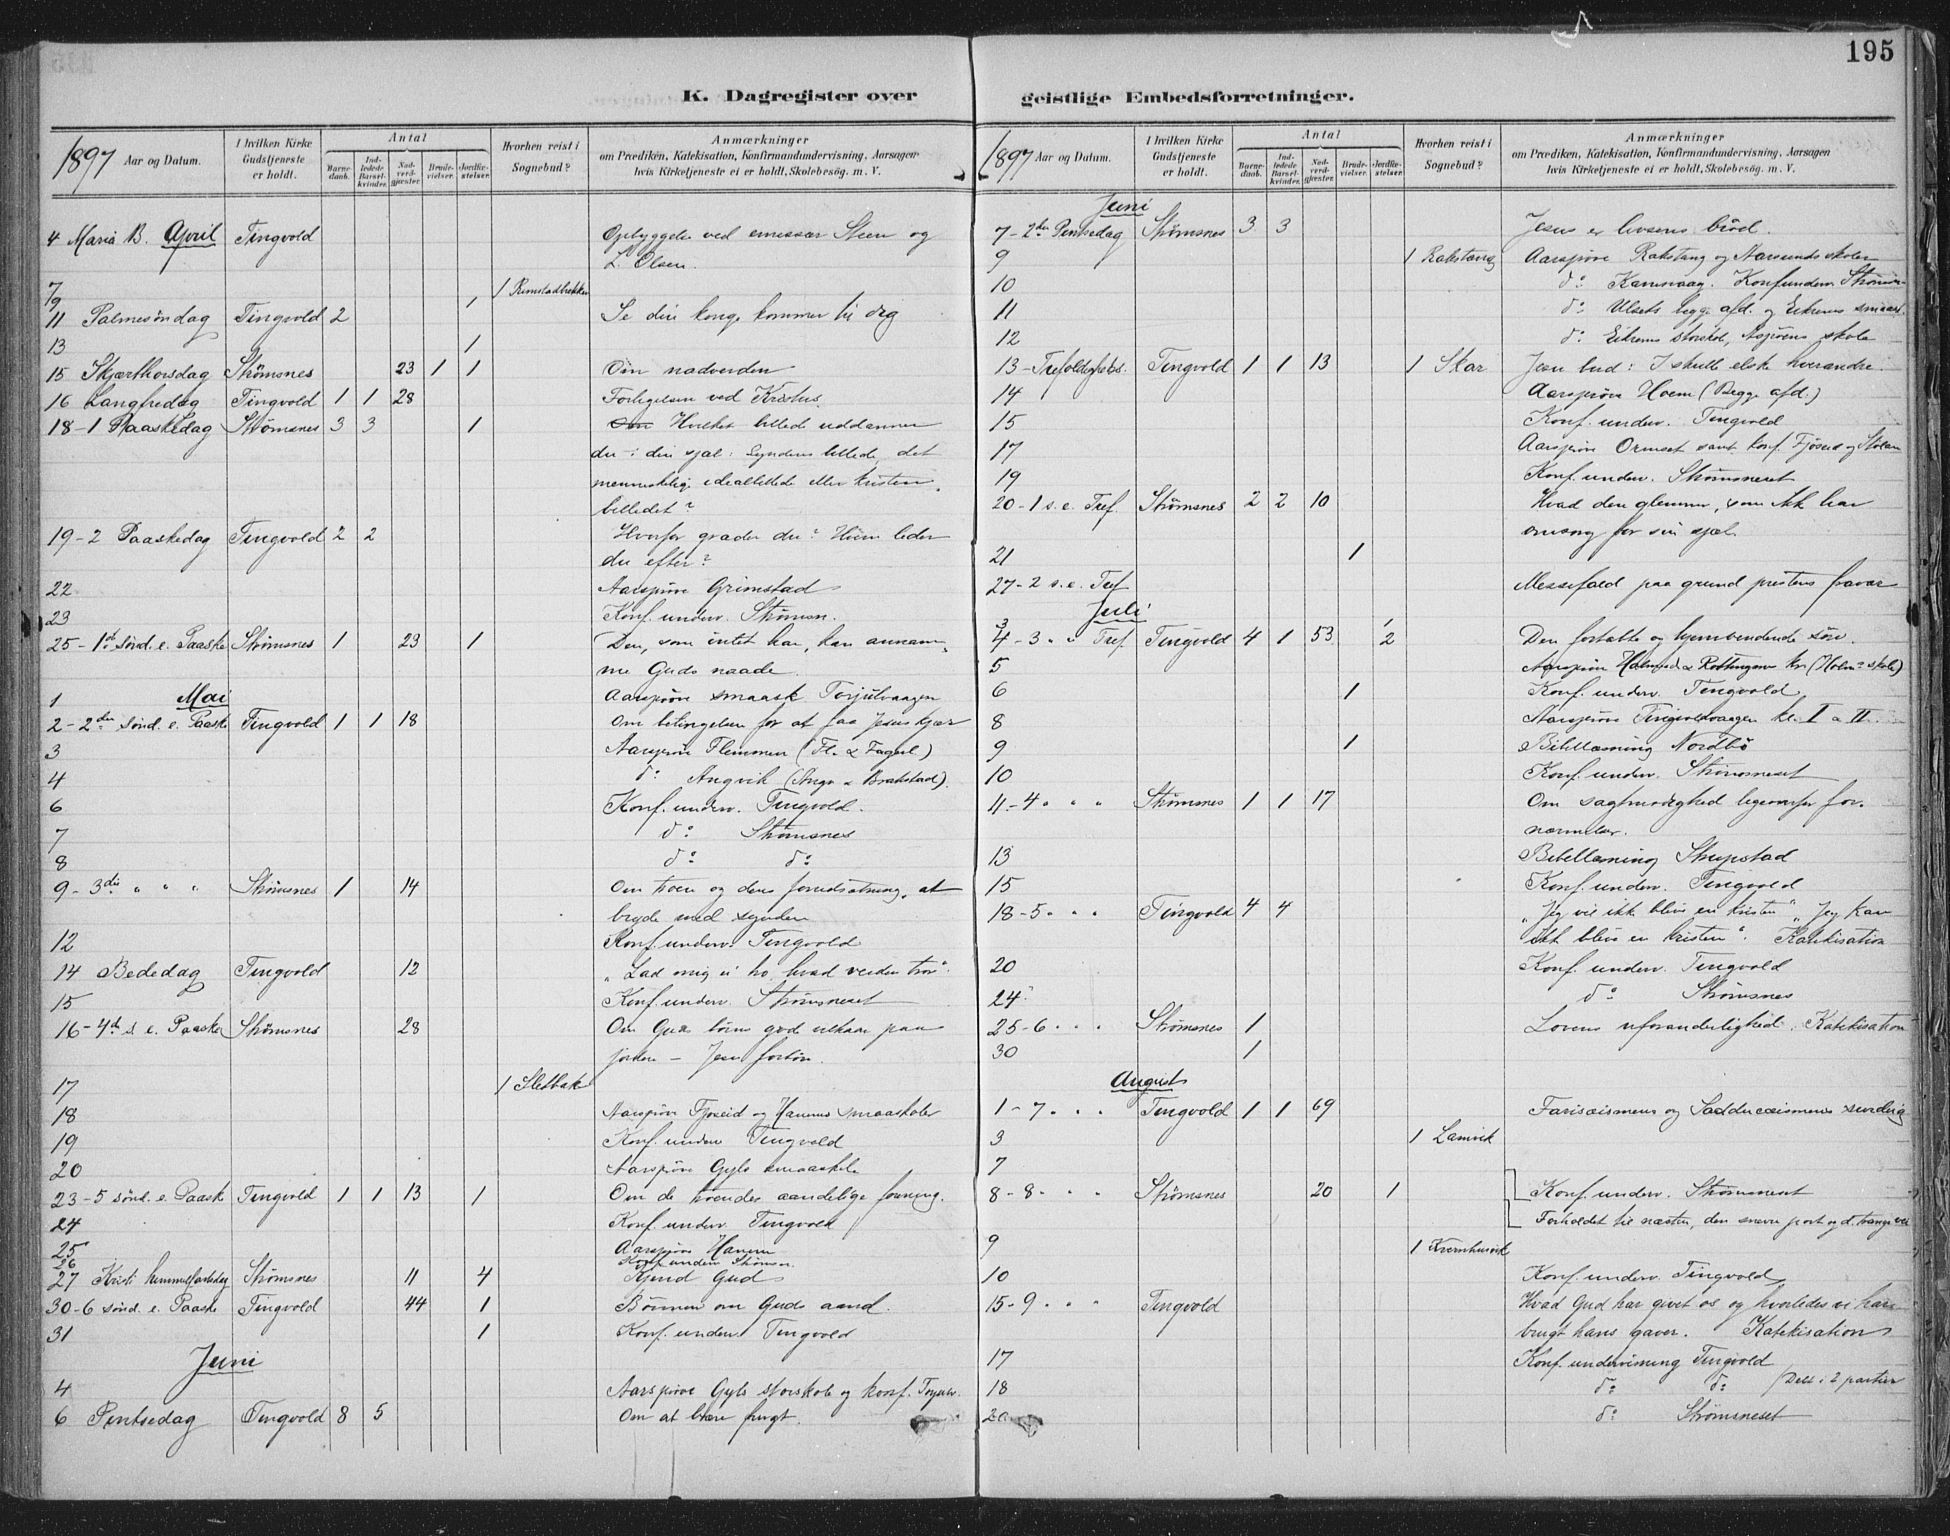 195
K. Dagregister over geistlige Embedsforretninger.
1897 Aar og Datum. I hvilken Kirke Gudstjeneste er holdt. Antal Barnedaab. Indledede Barselkvinder. Nadverdgjæster. Brudevielser. Jordfæstelser. Hvorhen reist i Sognebud? Anmærkninger om Prædiken, Katekisation, Konfirmandundervisning, Aarsagen hvis Kirketjeneste ei er holdt, Skolebesøg. m. V.
4 Maria B. April Tingvold Opbyggelse ved emissær Steen og
L. Olsen.
7 1 Rimstadbakken
9 1
11 Palmesöndag Tingvold 2 Se din konge kommer til dig
13 1
15 Skjærthorsdag Strømsnes 23 1 1 Om nadverden
16 Langfredag Tingvold 1 1 28 Forligelsen ved Kristus.
18-1 Paaskedag Strømsnes 3 3 1 Om Hvilket billede uddanner
du i din sjæl: Syndens billede, det
menneskelige idealbillede eller kristen
billedet?
19-2 Paaskedag Tingvold 2 2 Hvorfor græder du? Hvem leder
du efter?
22 Aarsprøve Grimstad
23 Konf. underv. Strømsn.
25-1ste sönd. e. Paaske Strømsnes 1 23 1 Den, som intet har, kan annam-
me Guds naade.
Mai
1 Aarsprøve smaask. Torjulvaagen
2-2den sönd. e. Paaske Tingvold 1 1 18 Om betingelsen for at faa Jesus kjær
3 Aarsprøve Flemmen (Fl. & Fagerl.)
4 do Angvik (Angv. & Brakstad).
6 Konf. underv. Tingvold.
7 do Strømsnes
8 do do
9-3die " " " Strømsnes 1 14 Om troen og dens forudsætning, at
bryde med synden
12 Konf. underv. Tingvold
14 Bededag Tingvold 12 "Lad mig ei tro, hvad verden tror".
15 Konf. underv. Strømsneset
16-4de s. e. Paaske Strømsnes 28 Om Guds börns god vilkaar paa
jorden – Jesu forbön.
17 1 Sletbak
18 Aarsprøve Fjøseid og Hanems smaaskoler
19 Konf. underv. Tingvold
20 Aarsprøve Gyls smaaskole
23-5 sönd. e. Paaske Tingvold 1 1 13 1 Om de troendes aandelige forening.
24 Konf. underv. Tingvold
25 Aarsprøve Hanem
26 Konf. underv. Strømsn.
27 Kristi himmelfartsdag Strømsnes 11 4 Kjend Gud
30-6 sönd. e. Paaske Tingvold 44 1 Bönnen om Guds aand.
31 1 Konf. underv. Tingvold
Juni
4 Aarsprøve Gyls storskole og konf.
6 Pintsedag Tingvold 8 5 Om at bære frugt.
1897 Aar og Datum. I hvilken Kirke Gudstjeneste er holdt. Antal Barnedaab. Indledede Barselkvinder. Nadverdgjæster. Brudevielser. Jordfæstelser. Hvorhen reist i Sognebud? Anmærkninger om Prædiken, Katekisation, Konfirmandundervisning, Aarsagen hvis Kirketjeneste ei er holdt, Skolebesög. m. V.
Juni
7-2den Pintsedag Strømsnes 3 3 Jesus er livsens bröd.
9 1 Rakstang Aarsprøve Rakstang og Aarsunds skoler
10 do Kamsvaag. Konfunderv. Strømsn.
11 do Ulsets begge afd. og Eikrems smaask.
12 do Eikrems storskole, Aspøens skole
13-Trefoldighets. Tingvold 1 1 13 1 Skar Jesu bud: I skulle elske hverandre.
14 Aarsprøve Hoem (Begge afd.)
15 Konf. underv. Tingvold
17 Aarsprøve Ormset samt konf. Fjøseid og
19 Konf. underv. Strømsneset
20-1 s. e. Tref. Strømsnes 2 2 10 Hvad den glemmer, som ikke har
omsorg for sin sjæl.
21 1
27-2 s. e. Tref Messefald paa grund prestens fravær
Juli
3 1
4-3 " " Tref. Tingvold 4 1 53 2 Den fortabte og hjemvendende sön.
5 Aarsprøve
6 1 Konf. underv. Tingvold
8 Aarsprøve Tingvoldvaagen kl. I & II
9 1 Bibellæsning Nordbö
10 Konf. underv. Strømsneset
11-4 " " " Strømsnes 1 1 17 Om sagtmodighed ligeoverfor for-
nærmelser.
13 Bibellæsning Strupstad
15 Konf. underv. Tingvold
18-5 " " " Tingvold 4 4 "Jeg vil ikke blive en kristen" "Jeg kan
ikke blive en kristen". Katekisation
20 Konf. underv. Tingvold
24 do Strømsnes
25-6 " " " Strømsnes 1 Lovens uforanderlighed. Katekisation
30 1
August
1-7 " " " Tingvold 1 1 69 Farisæismens og Sadducæismens surdeig
3 1 Lamvik
7 Konf. underv. Strømsneset
8-8 " " " Strømsnes 20 1 Forholdet til næsten, den snevre port og d. trange vei
9 1 Kvernhusvik
10 Konf. underv. Tingvold
15-9 " " " Tingvold Hvad Gud har givet os og hvorledes vi har
brugt hans gaver. Katekisation
17 Konf. undervisning Tingvold
18 do do (Delt i 2 partier
20 do Strømsneset